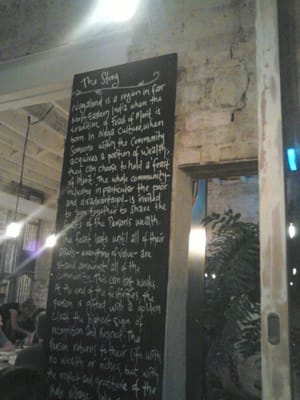 The Story
Nagaland is a region in far
North Eastern India where the
tradition of Feast of Merit is
born in Naga Culture, when
Someone within the Community
acquires a position of wealth,
they can choose to hold a feast
of Merit. The whole community-
including in particular the poor
and disadvantaged - is invited
to join together to share the
of the Person's wealth.
The feast lasts until all of their
everything of value - are
shared amongst all of the
Community. This can last weeks.
At the end of the festivities the
Person is gifted with a
the highest sign of
recognition and Respect. The
Person returns to their life with
no wealth or riches, but with
the respect and gratitude of the